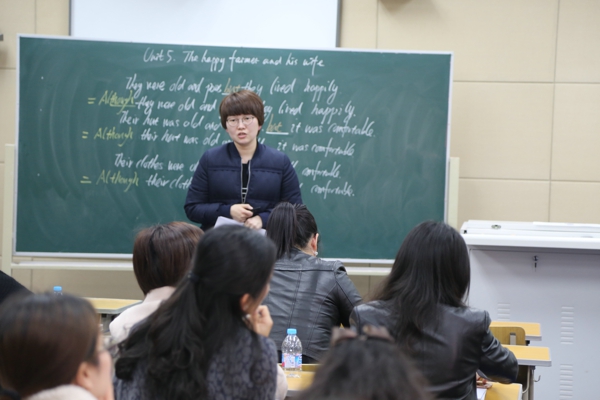 Unit 5. The happy farmer and his wife
They were old and poor, but they lived happily
= Although they were old and they lived happily.
Their hut was old and but it was comfortable.
= Although their hut was old it was comfortable
Their clothes were comfortable
= Although their clothes comfortable.